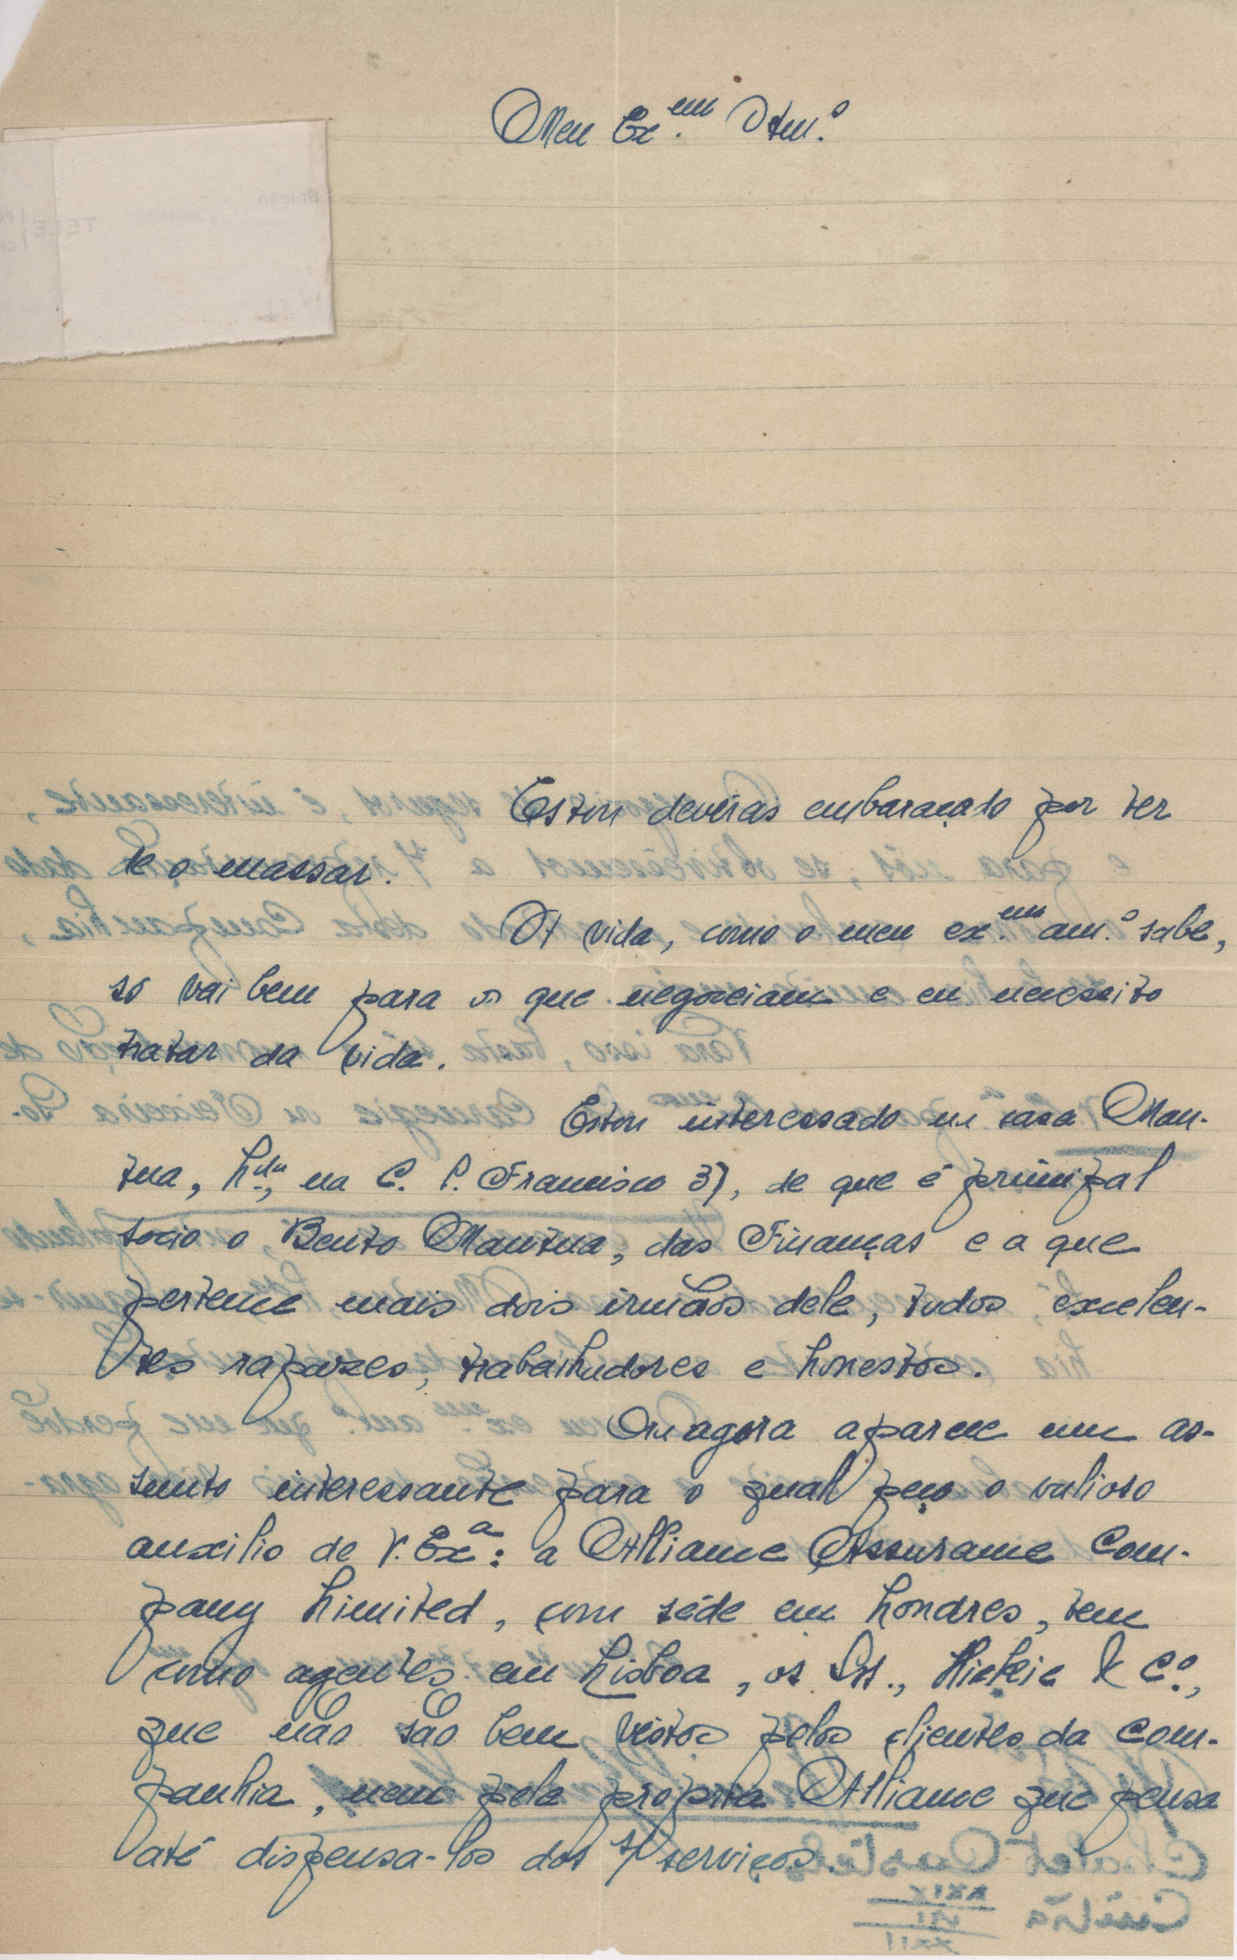 Meu Ex.mo Am.o
Estou deveras embaraçado por ter
de o massar.
A vida, como o meu ex.mo am.o sabe,
só vai bem para os que negoceiam e eu necessito
tratar da vida.
Estou interessado na casa Man-
tua, L.da, na C. S. Francisco 37, de que é principal
socio o Bento Mantua, das Finanças e a que
pertence mais dois irmãos dele, todos, excelen-
tes rapazes, trabalhadores e honestos.
Ora agora aparece um as-
sunto interessante para o qual peço o valioso
auxilio de V. Ex.a: a Alliance Assurance Com-
pany Limited, com séde em Londres, tem
como agentes em Lisboa, os Srs., Hickie & C.o,
que não são bem vistos pelos clientes da Com-
panhia, nem pela propria Alliance que pensa
até dispensa-los dos s/ serviços.